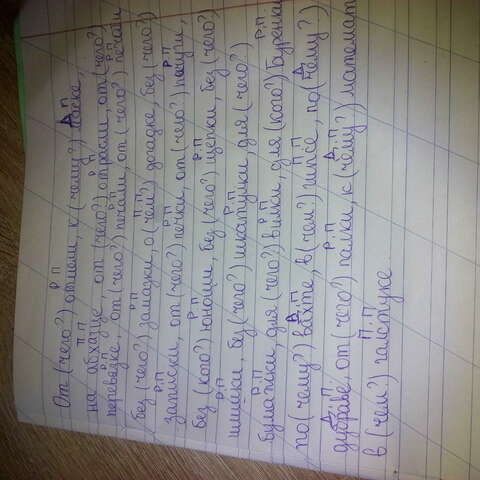 Р.П Д.П
От (чего?) отмели, к (чему?) маске,
П.П Р.П
на абхазце, от (чего?) отрасли, от (чего?)
Р.П Р.П Р.П
перевязке, от (чего?) печали, от (чего?) печати
Р.П П.П
без (чего?) замазки, о (чем?) догадке, без (чего?)
Р.П Р.П Р.П
записки, от (чего?) печки, от (чего?)
Р.П Р.П
без (кого?) юноши, без (чего?) щепки, без (чего?)
Р.П Р.П
шишки, без (чего?) шкатулки, для (чего?)
Р.П Р.П Р.П
бумажки, для (чего?) вилки, для (кого?) Буренки
Д.П П.П
по (чему?) вахте, в (чем?) гипсе, по (чему?)
Д.П. Р.П Д.П
дубраве, от (чего?) палки, к (чему?) математ
П.П
в (чем?) галстуке